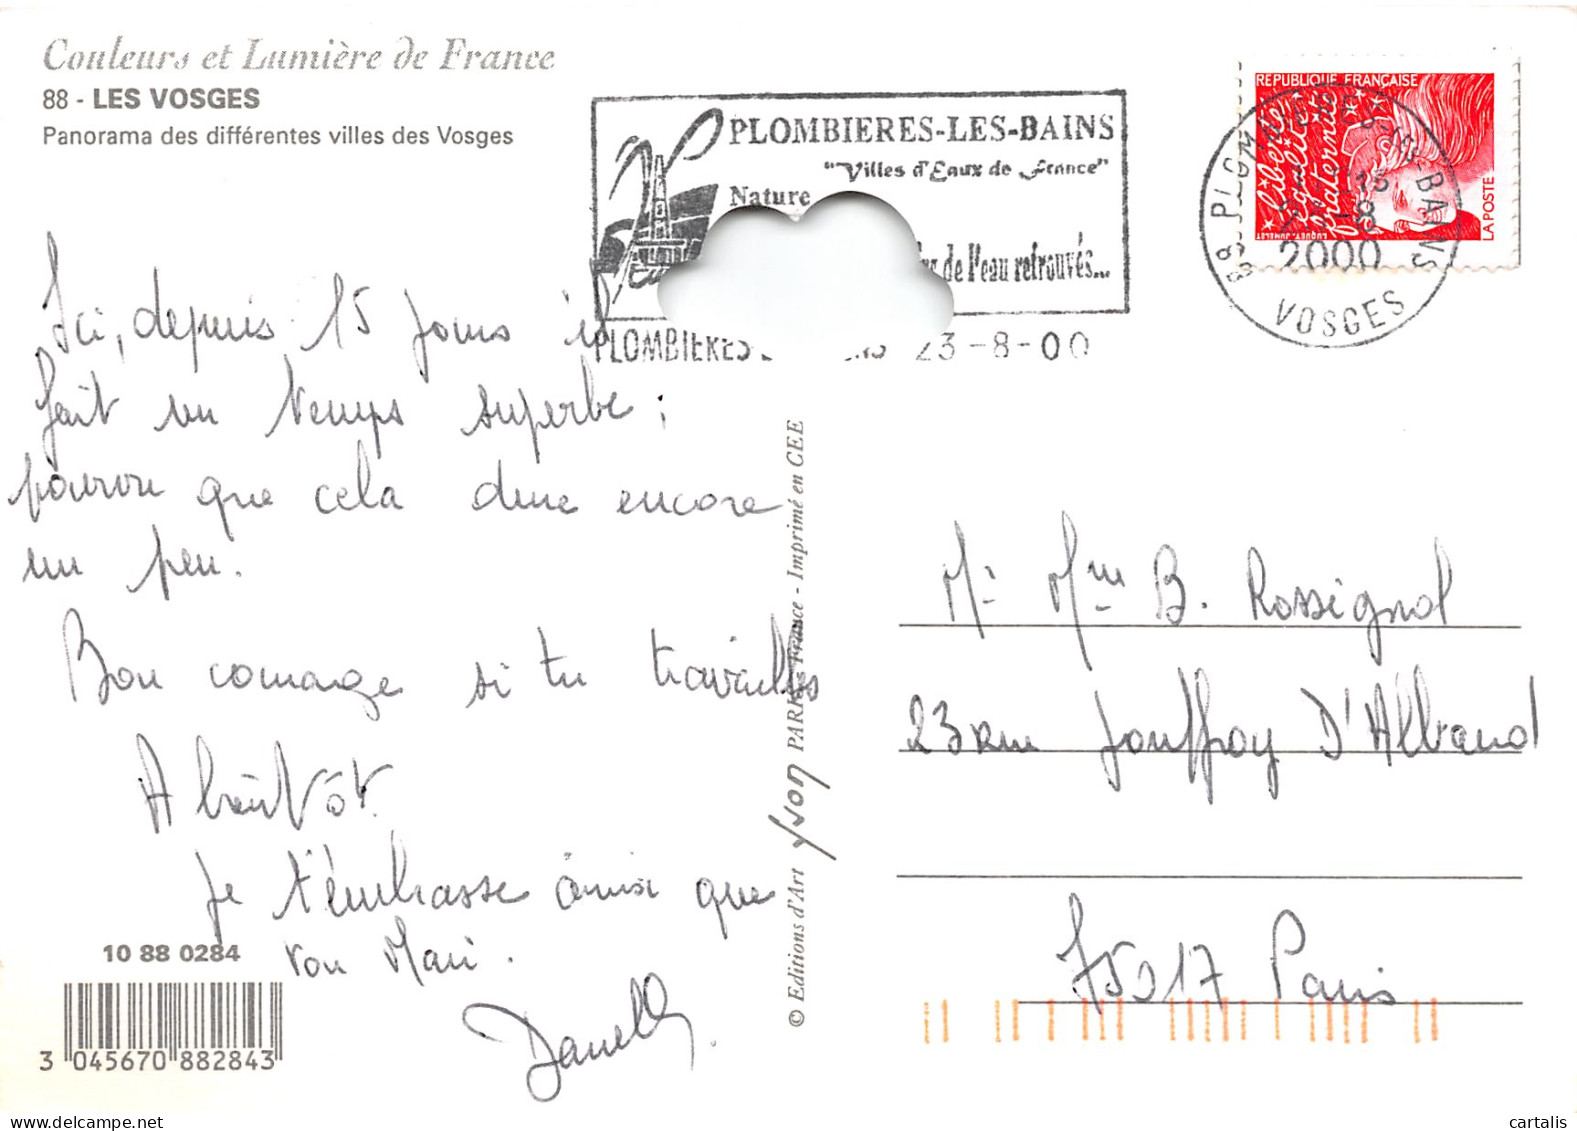 Couleurs et Lumière de France
88 - LES VOSGES
Panorama des différentes villes des Vosges
PLOMBIERES-LES-BAINS
"Villes d'Eaux de France"
Nature
de l'eau retrouvés...
PLOMBIERES 23-8-00
REPUBLIQUE FRANÇAISE
liberté
égalité
fraternité
LA POSTE
LUQUET-JUMELET
88 PLOMBIERES-LES-BAINS
15
2000
VOSGES
Ici, depuis 15 jours il
fait un temps superbe ;
pourvu que cela dure encore
un peu.
Bon courage si tu travailles
A bientôt.
Je t'embrasse ainsi que
ton Mari.
Danielle.
M. Mme B. Rossignol
23 rue Jouffroy D'Abbans
75017 Paris
© Editions d'Art yvon PARIS France - Imprimé en CEE
10 88 0284
3 045670 882843
cartalis